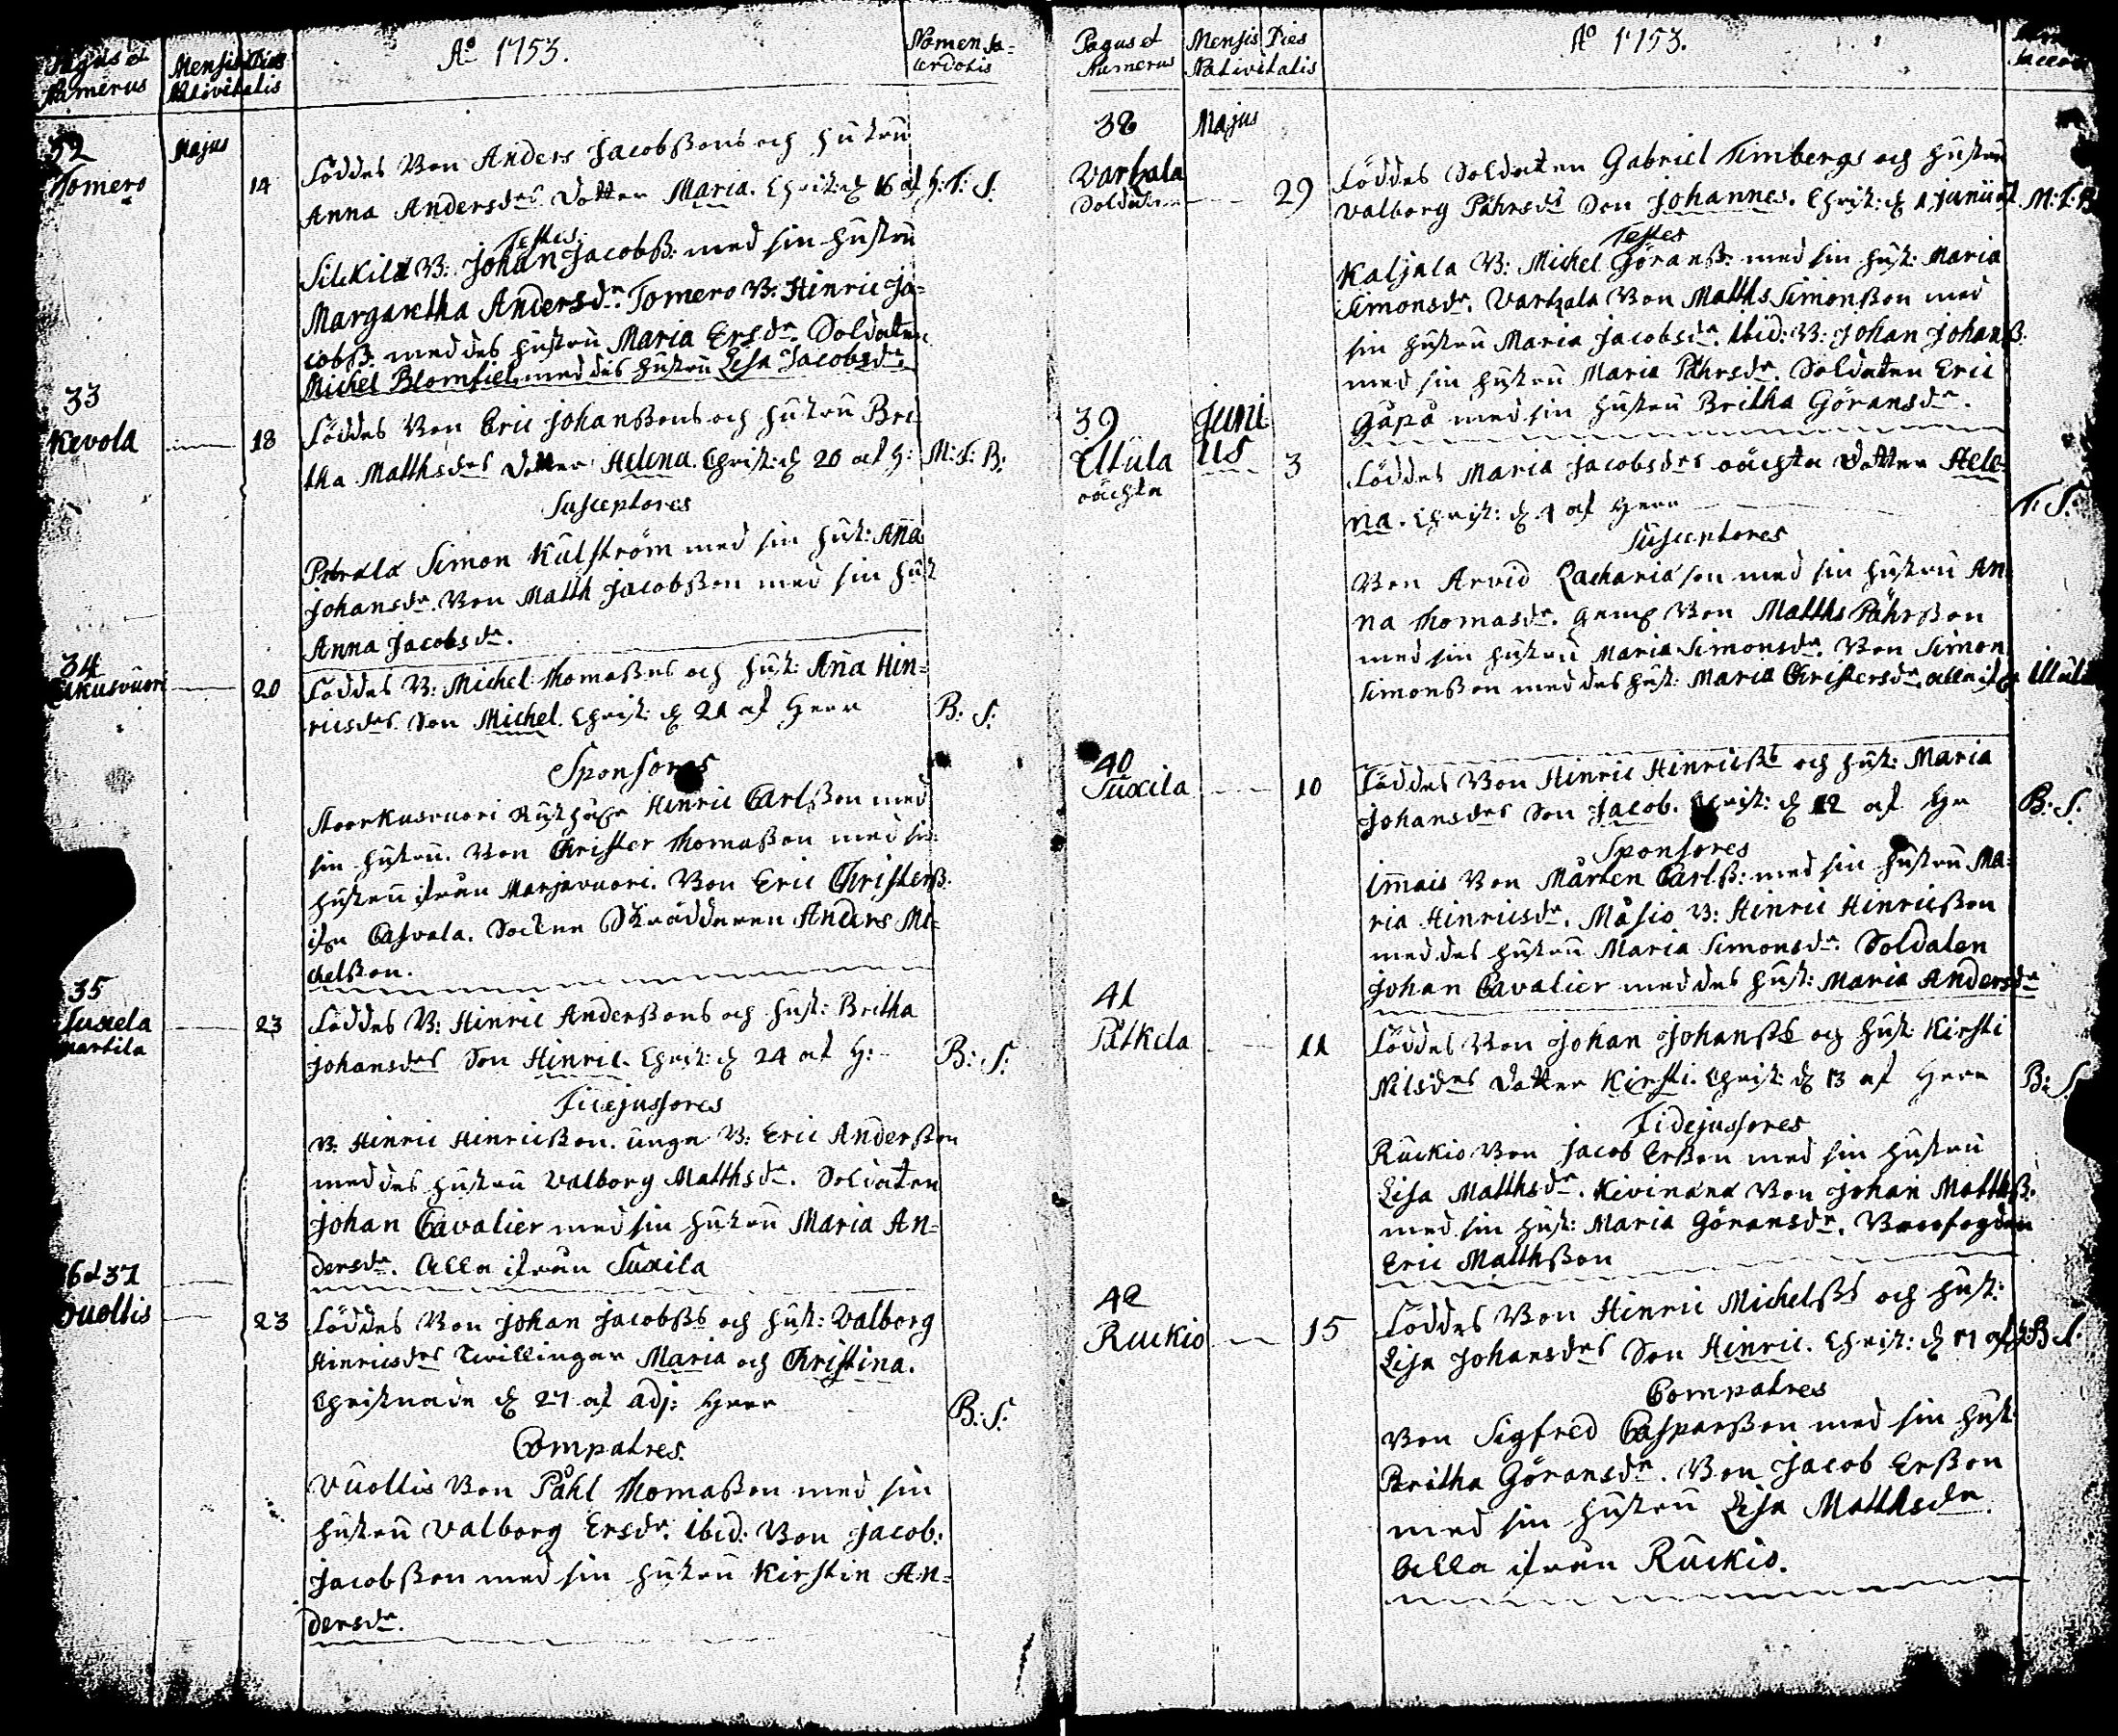 Pagus et Numerus
Mensis Dies Nativitatis
Ao 1753.
Nomen Sacerdotis
32 Majus
Tomero 14 Föddes Bon Anders Jacobßons och hustru
Anna Andersdrs Dotter Maria. Christ: d 16 af H: T: S.
Testes.
Silkilä B: Johan Jacobß: med sin hustru
Margaretha Andersdr. Tomero B: Hinric Ja=
cobß: med des hustru Maria Ersdr. Soldaten
Michel Blomfielt med des hustru Lisa Jacobsdr.
33
Kevola 18 Föddes Bon Eric Johanßons och hustru Bri=
tha Matthsdrs Dotter Helena. Christ: d 20 af H: M: T: B:
Susceptores
Simon Kulström med sin hust: Aña
Johansdr. Bon Matth Jacobßon med sin hust
Anna Jacobsdr.
34
20 Föddes B: Michel Thomaßns och hust: Aña Hin=
ricsdrs Son Michel. Christ: d 21 af Herr B: S:
Sponsores
Storkusvuori Rusthåll: Hinric Carlßon med
sin hustru. Bon Christer Thomaßon med sin
hustru ifrån Marjavuori. Bon Eric Christerß.
ifrn Casvala. Socknn Skräddaren Anders Mi=
chelßon.
35
Tuxela
Martila 23 Föddes B: Hinric Anderßons och hust: Britha
Johansdrs Son Hinric. Christ: d 24 af H: B: S:
Fidejussores
B: Hinric Hinricßon. unga B: Eric Anderßon
med des hustru Valborg Matthsdr. Soldaten
Johan Cavalier med sin hustru Maria An=
dersdr. Alla ifrån Tuxila
36 et 37
Vuoltis 23 Föddes Bon Johan Jacobßs och hust: Valborg
Hinricsdrs Twillingar Maria och Christina.
Christnade d 27 af Adj: Herr B: S:
Compatres.
Vuoltis Bon Påhl Thomaßon med sin
hustru Valborg Ersdr. ibid: Bon Jacob.
Jacobßon med sin hustru Kirstin An=
dersdr.
Pagus et Numerus
Mensis Dies Nativitatis
Ao 1753.
38 Majus
Vartzala
Soldaten 29 Föddes Soldaten Gabriel Timbergs och hustru
Valborg Påhrsdrs Son Johannes. Christ: d 1 Junii af M: T: B
Testes
Kaljala B: Michel Göranß: med sin hust: Maria
Simonsdr. Vartzala Bon Matths Simonßon med
sin hustru Maria Jacobsdr. ibid: B: Johan Johanß.
med sin hustru Maria Påhrsdr. Soldaten Eric
Gåpå med sin hustru Britha Göransdr.
39 Juni
us
Uttula
oächta 3 Föddes Maria Jacobsdrs oächta Dotter Hele=
na. Christ: d 4 af Herr T: S:
Susceptores
Bon Arvid Zachariæson med sin hustru An=
na Thomasdr. Bon Matths Påhrßon
med sin hustru Maria Simonsdr. Bon Simon
Simonßon med des hust: Maria Christersdr. alla ifr Uttula
40
Tuxila 10 Föddes Bon Hinric Hinricßs och hust: Maria
Johansdrs Son Jacob. Christ: d 12 af Hr B: S:
Sponsores
Imais Bon Mårten Carlß: med sin hustru Ma=
ria Hinricsdr. Måsio B: Hinric Hinricßon
med des hustru Maria Simonsdr. Soldaten
Johan Cavalier med des hust: Maria Andersdr
41
Pitkela 11 Föddes Bon Johan Johanßs och hust: Kirsti
Nilsdrs Dotter Kirsti. Christ: d 13 af Herr B: S.
Fidejussores
Ruckio Bon Jacob Erßon med sin hustru
Lisa Matthsdr. Kivinena Bon Johan Matthß.
med sin hust: Maria Göransdr.
Eric Matthßon
42
Ruckio 15 Föddes Bon Hinric Michelßs och hust:
Lisa Johansdrs Son Hinric. Christ: d 17 af H B S:
Compatres
Bon Sigfred Casparßon med sin hust:
Britha Göransdr. Bon Jacob Erßon
med sin hustru Lisa Matthsdr.
Alla ifrån Ruckio.